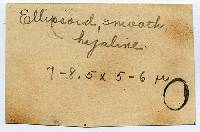 Ellipsoid, smooth
hyaline.
7-8.5 x 5-6 µ